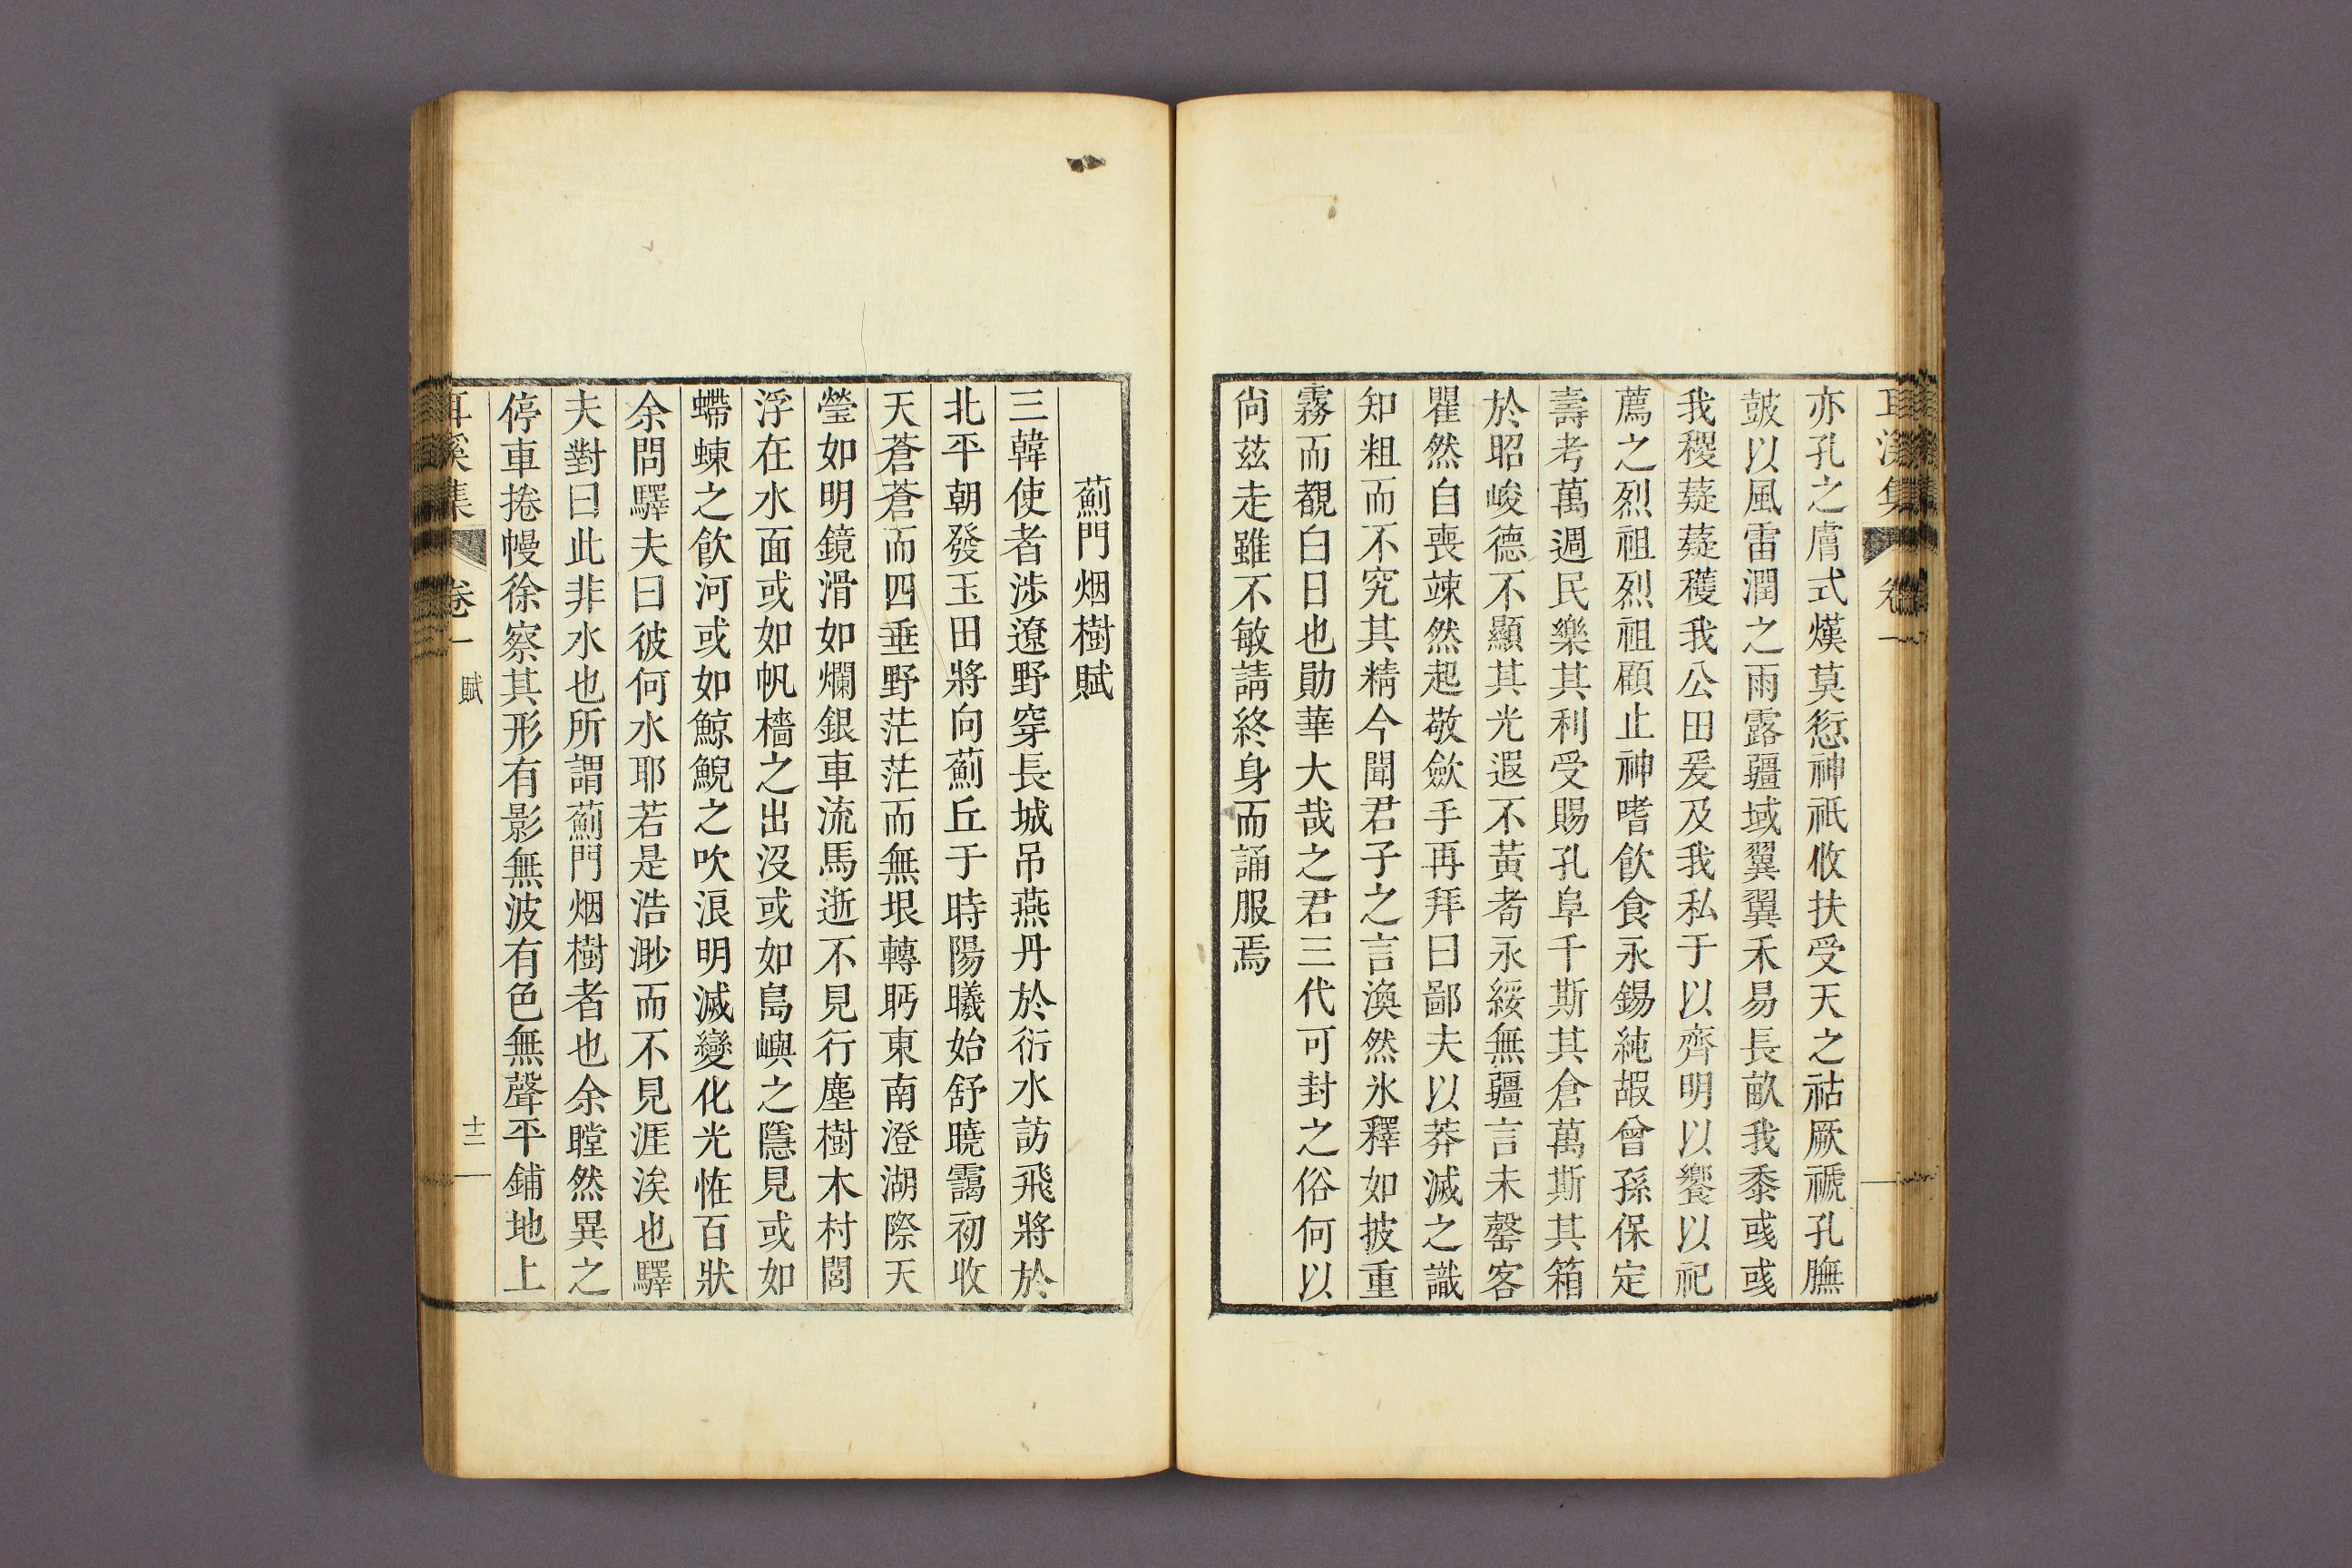 耳溪集 卷一
亦孔之膚式熯莫愆神祇攸扶受天之祜厥禠孔膴
鼓以風雷潤之雨露疆域翼翼禾易長畝我黍彧彧
我稷薿薿穫我公田爰及我私于以齊明以饗以祀
薦之烈祖烈祖顧止神嗜飮食永錫純嘏曾孫保定
壽考萬週民樂其利受賜孔阜千斯其倉萬斯其箱
於昭峻德不顯其光遐不黃耇永綏無疆言未罄客
瞿然自喪竦然起敬斂手再拜曰鄙夫以莽滅之識
知粗而不究其精今聞君子之言渙然氷釋如披重
霧而覩白日也勛華大哉之君三代可封之俗何以
尙玆走雖不敏請終身而誦服焉
薊門烟樹賦
三韓使者涉遼野穿長城吊燕丹於衍水訪飛將於
北平朝發玉田將向薊丘于時陽曦始舒曉靄初收
天蒼蒼而四垂野茫茫而無垠轉眄東南澄湖際天
瑩如明鏡滑如爛銀車流馬逝不見行塵樹木村閭
浮在水面或如帆檣之出沒或如島嶼之隱見或如
螮蝀之飮河或如鯨鯢之吹浪明滅變化光恠百狀
余問驛夫曰彼何水耶若是浩渺而不見涯涘也驛
夫對曰此非水也所謂薊門烟樹者也余瞠然異之
停車捲幔徐察其形有影無波有色無聲平鋪地上
耳溪集 卷一 賦 十二